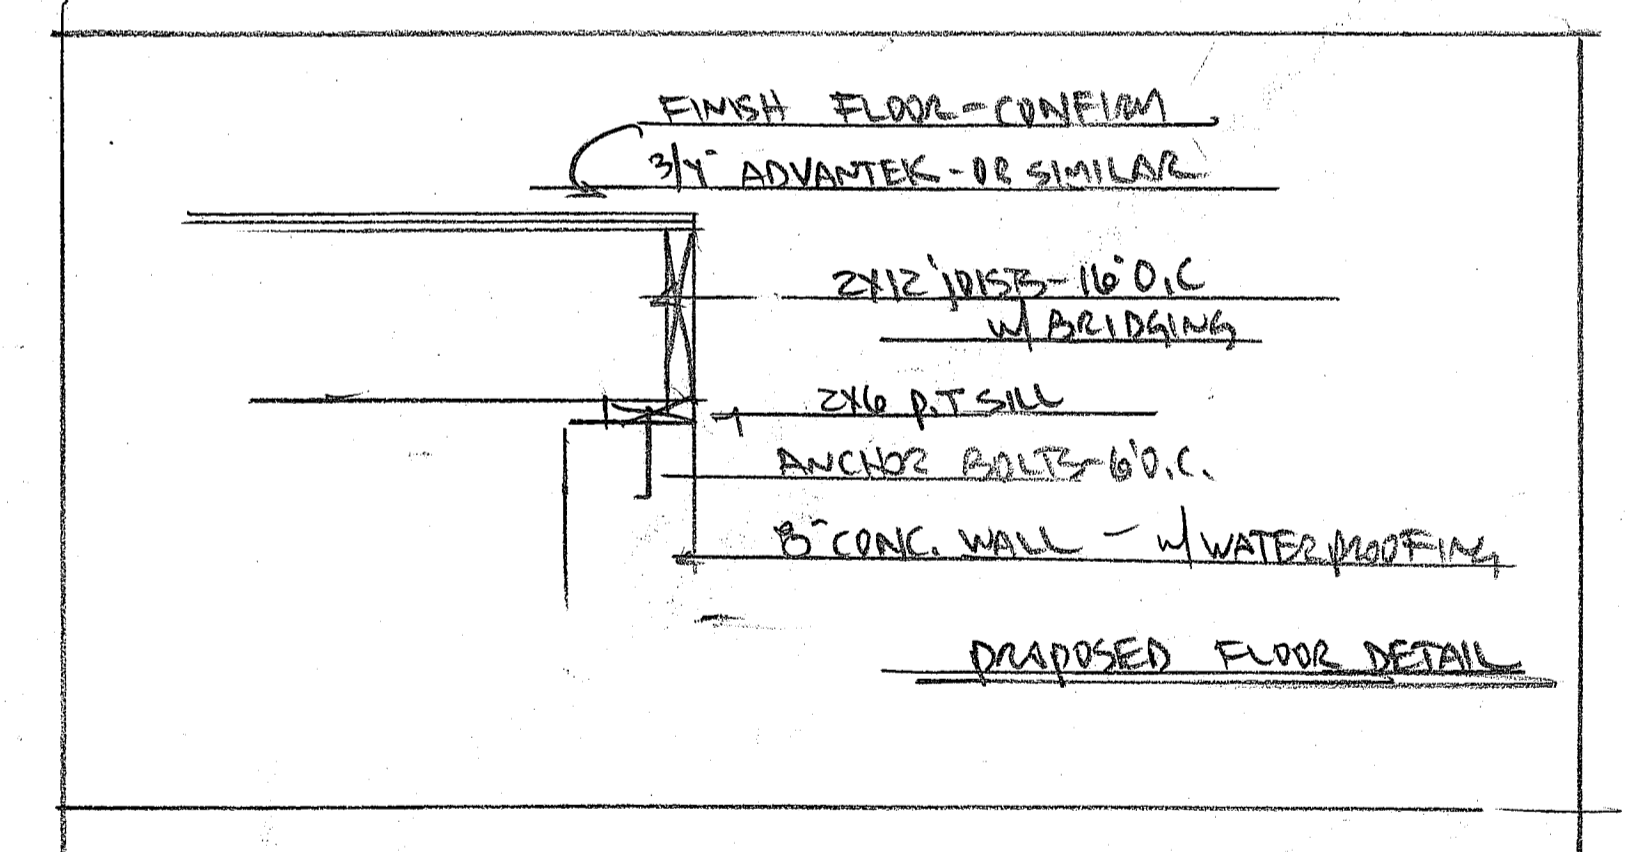 FINISH FLOOR-CONFIRM
3/4" ADVANTEK-OR SIMILAR
2X12 JOISTS-16"O.C
W/ BRIDGING
2X6 P.T SILL
ANCHOR BOLTS-6'O.C.
8" CONC. WALL - W/ WATERPROOFING
PROPOSED FLOOR DETAIL